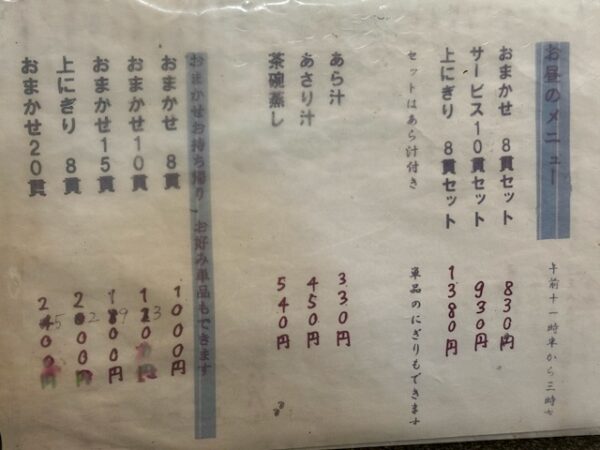 お昼のメニュー 午前十一時半から三時
おまかせ 8貫セット 830円
サービス10貫セット 930円
上にぎり 8貫セット 1380円
セットはあら汁付き 単品のにぎりもできます
あら汁 330円
あさり汁 450円
茶碗蒸し 540円
おまかせお持ち帰り お好み単品もできます
おまかせ 8貫 1000円
おまかせ10貫 1300円
おまかせ15貫 1900円
上にぎり 8貫 2200円
おまかせ20貫 2500円